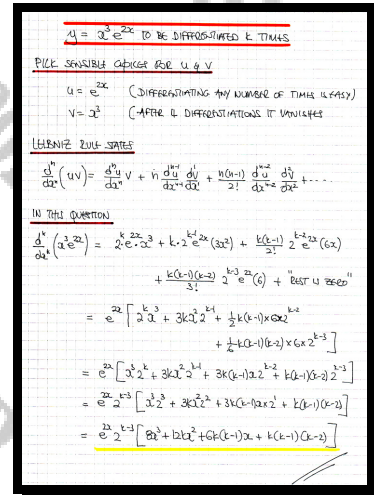 y = x³e²ˣ TO BE DIFFERENTIATED k TIMES
PICK SENSIBLE CHOICES FOR u & v
u = e²ˣ (DIFFERENTIATING ANY NUMBER OF TIMES IS EASY)
v = x³ (AFTER 4 DIFFERENTIATIONS IT VANISHES
LEIBNIZ RULE STATES
dⁿ/dxⁿ (uv) = dⁿu/dxⁿ v + n dⁿ⁻¹u/dxⁿ⁻¹ dv/dx + n(n-1)/2! dⁿ⁻²u/dxⁿ⁻² d²v/dx² + ....
IN THIS QUESTION
dᵏ/dxᵏ (x³e²ˣ) = 2ᵏ·e²ˣ·x³ + k·2ᵏ⁻¹e²ˣ(3x²) + k(k-1)/2! 2ᵏ⁻²e²ˣ(6x)
+ k(k-1)(k-2)/3! 2ᵏ⁻³e²ˣ(6) + "REST IS ZERO"
= e²ˣ [ 2ᵏx³ + 3kx²2ᵏ⁻¹ + ½k(k-1)×6x2ᵏ⁻²
+ ⅙k(k-1)(k-2)×6×2ᵏ⁻³ ]
= e²ˣ [ x³2ᵏ + 3kx²2ᵏ⁻¹ + 3k(k-1)x2ᵏ⁻² + k(k-1)(k-2)2ᵏ⁻³ ]
= e²ˣ 2ᵏ⁻³ [ x³2³ + 3kx²2² + 3k(k-1)x×2¹ + k(k-1)(k-2) ]
= e²ˣ 2ᵏ⁻³ [ 8x³ + 12kx² + 6k(k-1)x + k(k-1)(k-2) ]